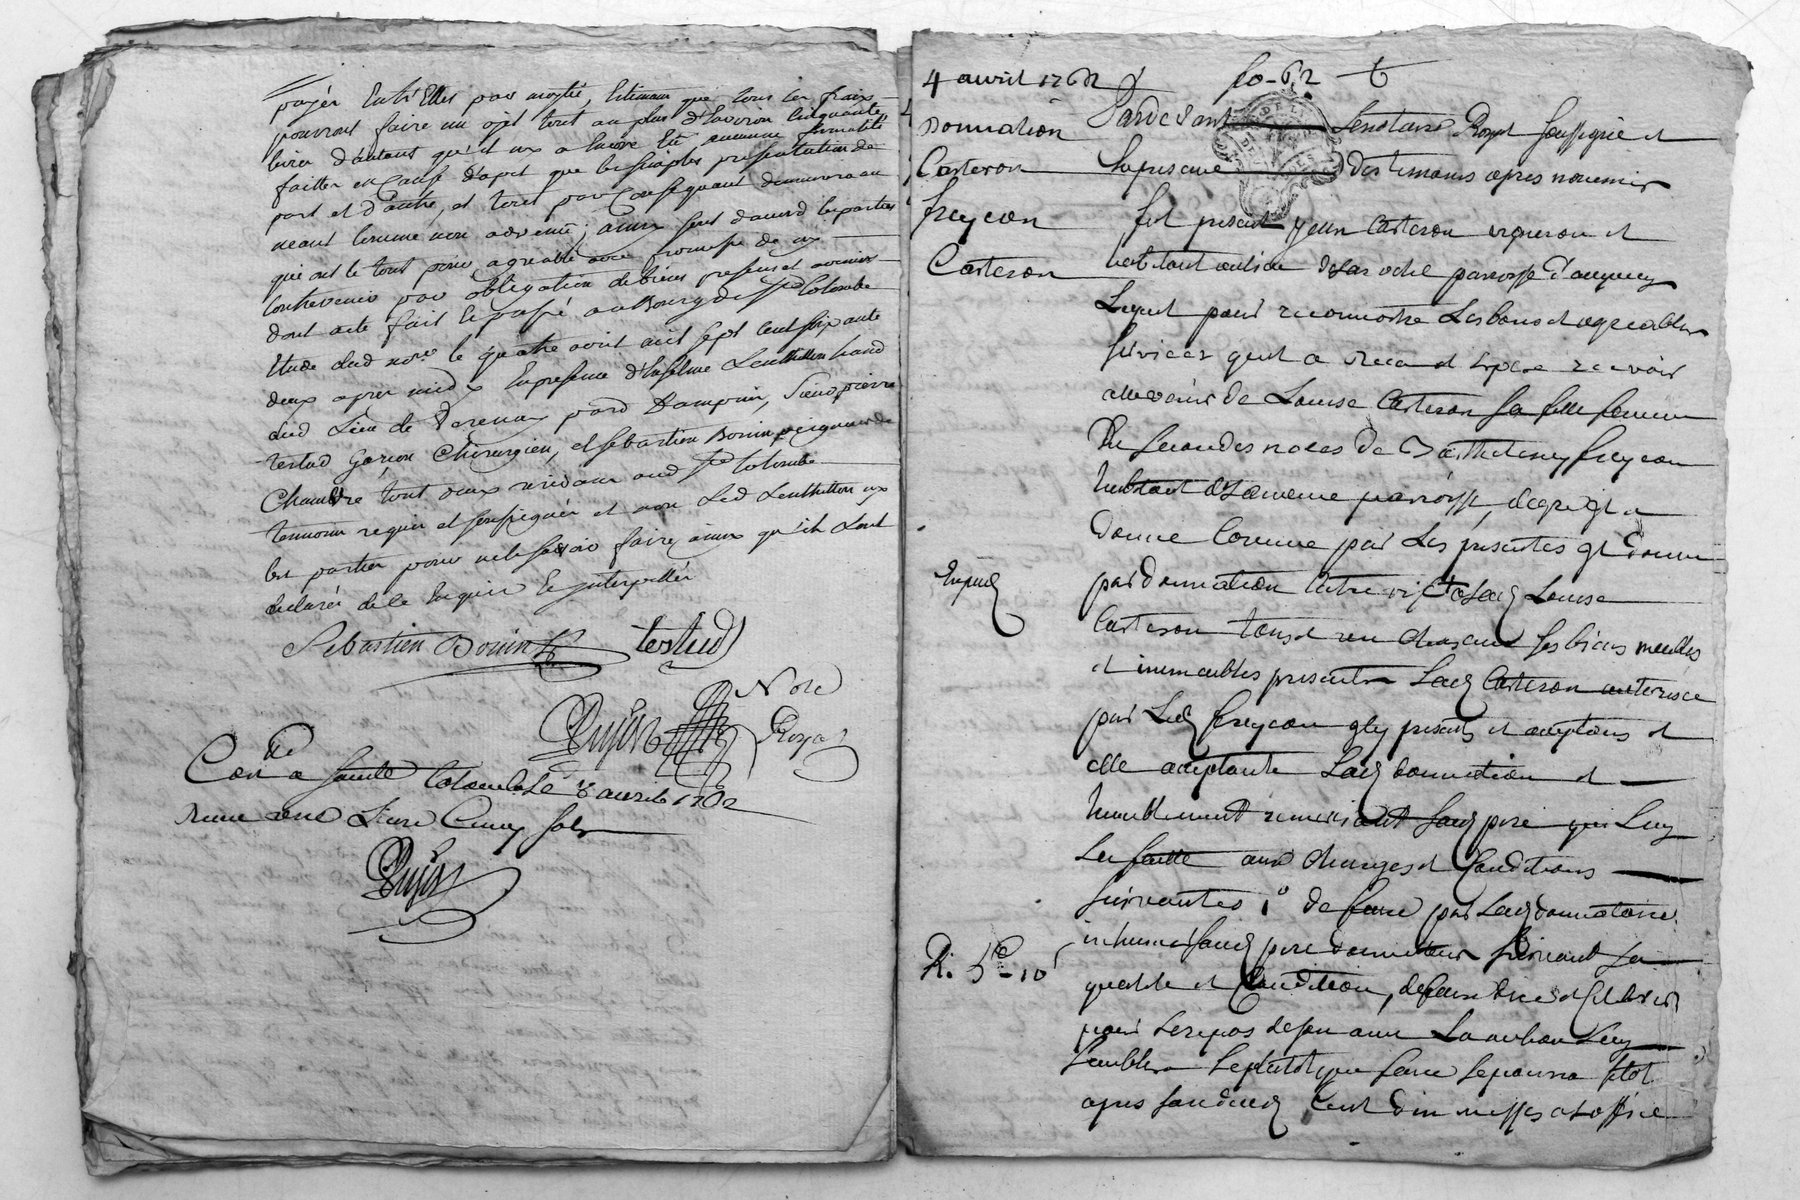 payer Entr'Elles par moytié, Estimant que tous les fraix
pourront faire un ojet tout au plus d'Environ Cinquante
livres d'autant qu'il n'y a Encore Eû aucune formalité
faitte en Cause d'apel que les simples presentations de
part et d'autre, et tout par Consequant demeurera au
neant comme non advenu; ainsy sont d'acord les parties
qui ont le tout pour agreable avec promesse de n'y
Contrevenir par obligation de biens presens et avenir
dont acte fait Et passé au Bourg de Ste Colombe
Etude dud nore le quatre avril mil sept Cent soixante
deux apres midy En presence d'
dud Lieu de par, Sieur pierre
testud Garcon Chirurgien, et sebastien Bonin peigneur de
Chanvre tous deux residans aud Ste Colombe
temoins requis et soussignés et non Led
les parties pour ne le savoir faire ainsy qu'ils L'ont
declarés de ce Enquis Et interpellés
Sebastien Bonin testud
Nore
Dujast Royal
Conllé a sainte Colombe Le 8 avril 1762
Reçu
Dujast
4 avril 1762 fo-62
Donnation
Carteron
freycon
Carteron
Pardevant Le notaire Royal soussigné et
En presence des temoins apres nommés
fut présent jean Carteron vigneron et
habitant au lieu de La roche parroisse d'ampuis
Lequel pour reconnoitre Les bons et agreables
services qu'il a receu et espere recevoir
a l'avenir de Louise Carteron sa fille femme
En secondes noces de Barthelemy freycon
habitant de La meme parroisse, de gré Et a
donné Comme par Les présentes Il donne
par donnation Entre vifs a Lad Louise
Carteron tous et un chacuns ses biens meubles
et immeubles presents Lad Carteron autorisée
par Led freycon Icy present et acceptans et
elle acceptante Lad donnation et
humblement remerciant sond pere qui Luy
La faitte aux charges et Conditions
suivantes 1° de faire par Lad donnataire
inhumer sond pere donnateur suivant Sa
qualité et Condition, de faire dire et Celebrer
pour Le repos de son ame La ou bon Luy
Semblera Le plutot que faire Se pourra Etot
apres son deced Cent dix messes a L'office
Expedié
R. 5 - 10s